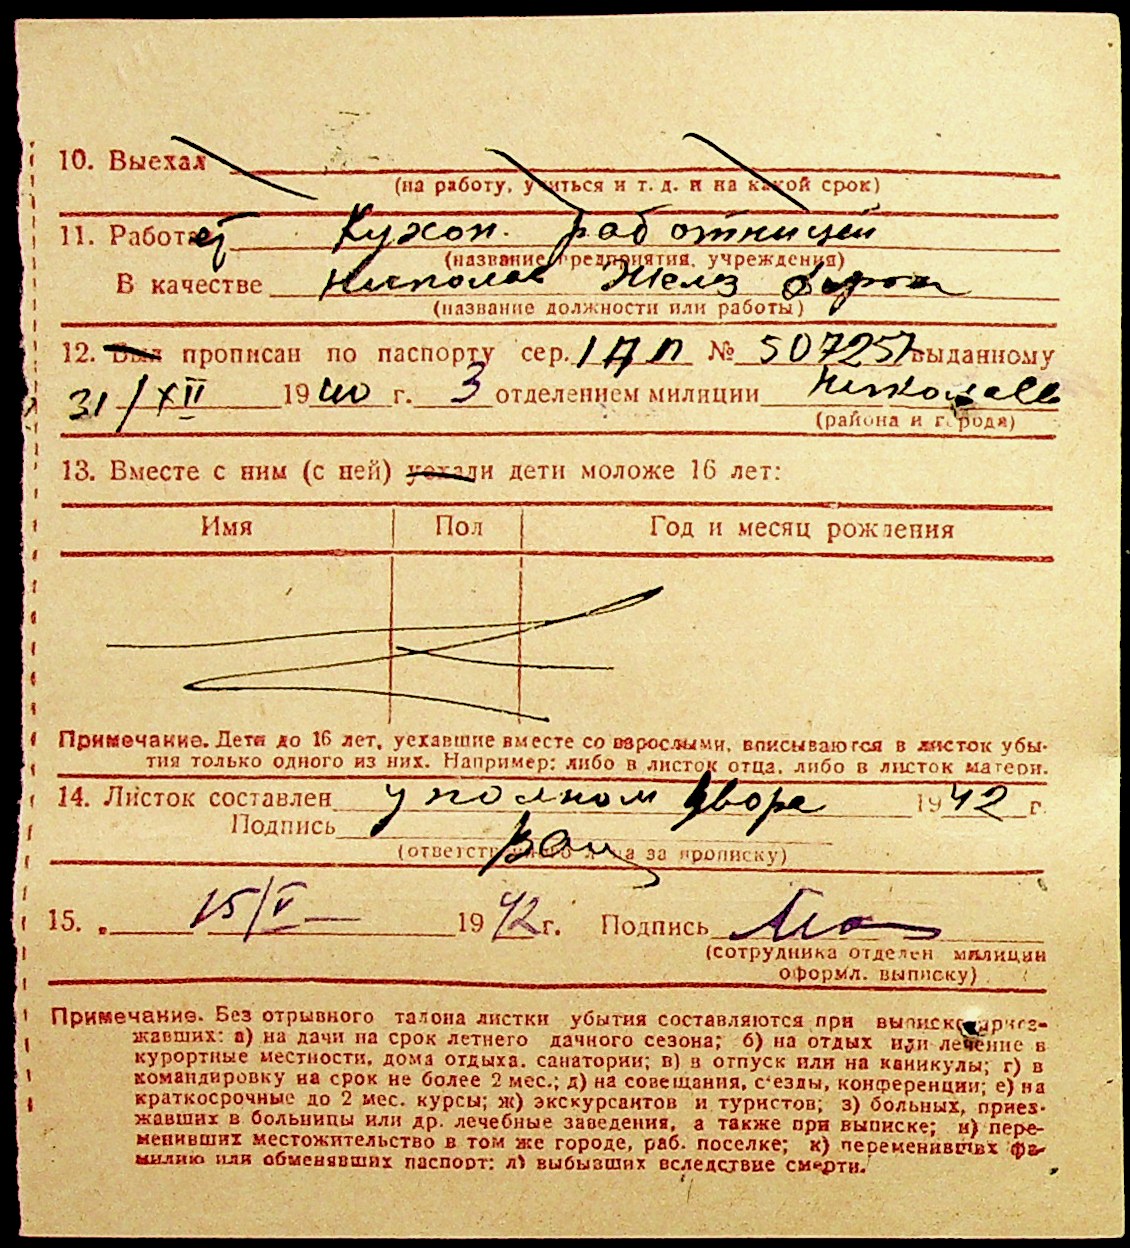 10. Выехал
(на работу, учиться и т. д. и на какой срок)
11. Работает Кухон. работницей
(название предприятия, учреждения)
В качестве Николаев Желез дорога
(название должности или работы)
12. Был прописан по паспорту сер. I ДП № 507257 выданному
31/XII 1940 г. 3 отделением милиции Николаев
(района и города)
13. Вместе с ним (с ней) уехали дети моложе 16 лет:
Имя Пол Год и месяц рождения
Примечание. Дети до 16 лет, уехавшие вместе со взрослыми, вписываются в листок убы-
тия только одного из них. Например: либо в листок отца, либо в листок матери.
14. Листок составлен уполном двора 1942 г.
Подпись
(ответственного лица за прописку)
15. 15/V 1942 г. Подпись
(сотрудника отделен милиции
оформл. выписку)
Примечание. Без отрывного талона листки убытия составляются при выписке приез-
жавших: а) на дачи на срок летнего дачного сезона; б) на отдых или лечение в
курортные местности, дома отдыха, санатории; в) в отпуск или на каникулы; г) в
командировку на срок не более 2 мес.; д) на совещания, с'езды, конференции; е) на
краткосрочные до 2 мес. курсы; ж) экскурсантов и туристов; з) больных, приез-
жавших в больницы или др. лечебные заведения, а также при выписке; и) пере-
менивших местожительство в том же городе, раб. поселке; к) переменивших фа-
милию или обменявших паспорт; л) выбывших вследствие смерти.